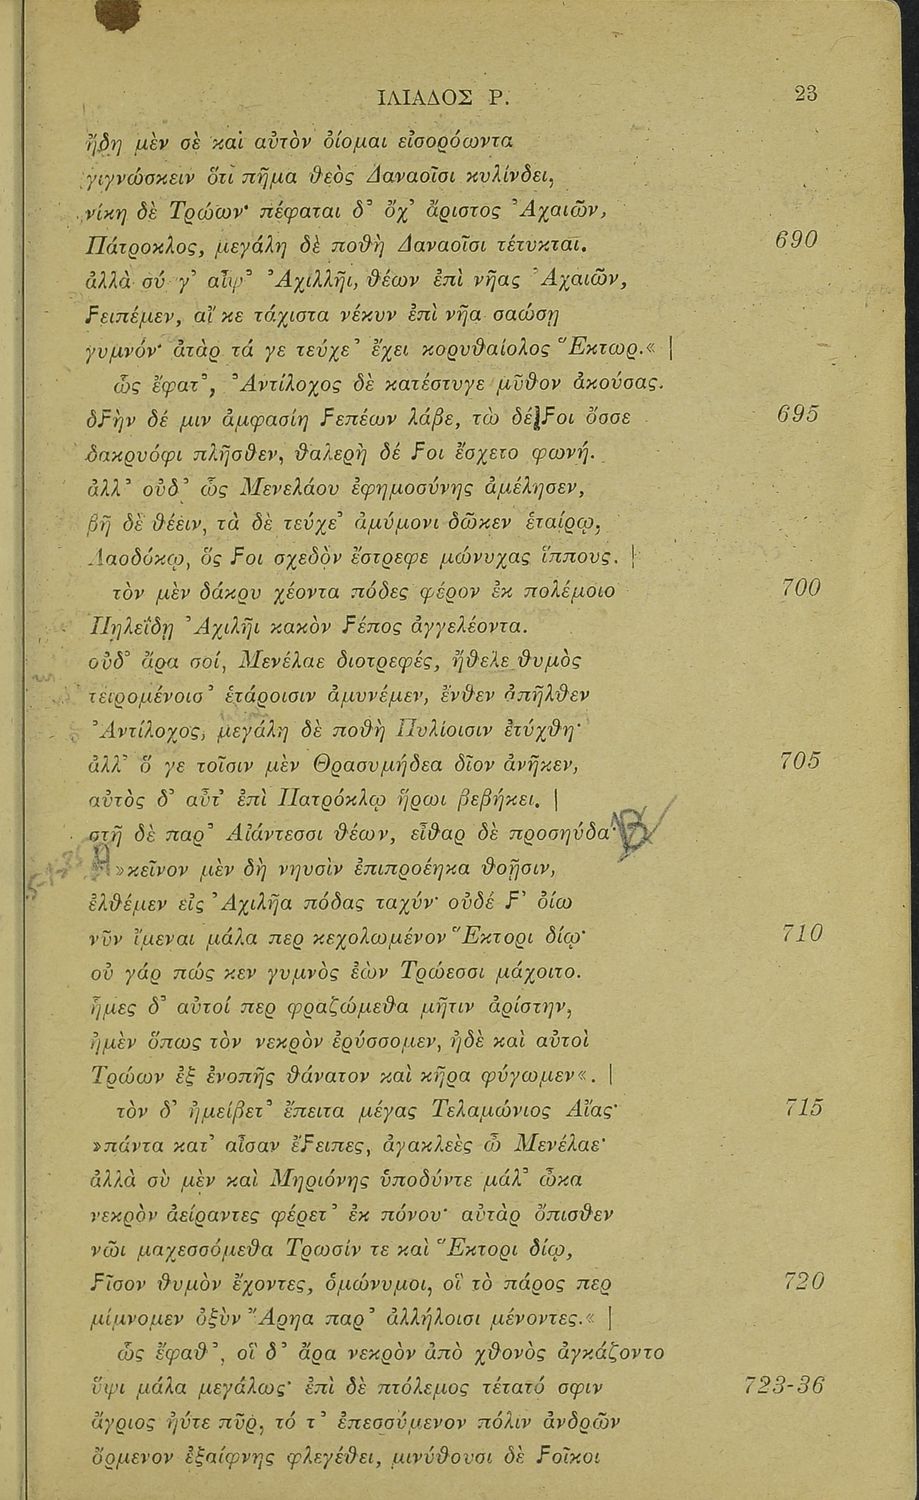 ΙΛΙΑΔΟΣ Ρ. 23
ἤδη μὲν σὲ καὶ αὐτὸν ὀίομαι εἰσορόωντα
γιγνώσκειν ὅτι πῆμα θεὸς Δαναοῖσι κυλίνδει,
νίκη δὲ Τρώων· πέφαται δ᾽ ὄχ᾽ ἄριστος Ἀχαιῶν,
Πάτροκλος, μεγάλη δὲ ποθὴ Δαναοῖσι τέτυκται. 690
ἀλλὰ σύ γ᾽ αἶψ᾽ Ἀχιλλῆι, θέων ἐπὶ νῆας Ἀχαιῶν,
ϝειπέμεν, αἴ κε τάχιστα νέκυν ἐπὶ νῆα σαώσῃ
γυμνόν· ἀτὰρ τά γε τεύχε᾽ ἔχει κορυθαίολος Ἕκτωρ.« |
ὣς ἔφατ᾽, Ἀντίλοχος δὲ κατέστυγε μῦθον ἀκούσας.
δϝὴν δέ μιν ἀμφασίη ϝεπέων λάβε, τὼ δέ|ϝοι ὄσσε 695
δακρυόφι πλῆσθεν, θαλερὴ δέ ϝοι ἔσχετο φωνή.
ἀλλ᾽ οὐδ᾽ ὧς Μενελάου ἐφημοσύνης ἀμέλησεν,
βῆ δὲ θέειν, τὰ δὲ τεύχε᾽ ἀμύμονι δῶκεν ἑταίρῳ,
Λαοδόκῳ, ὅς ϝοι σχεδὸν ἔστρεφε μώνυχας ἵππους. |
τὸν μὲν δάκρυ χέοντα πόδες φέρον ἐκ πολέμοιο 700
Πηλεΐδῃ Ἀχιλῆι κακὸν ϝέπος ἀγγελέοντα.
οὐδ᾽ ἄρα σοί, Μενέλαε διοτρεφές, ἤθελε θυμὸς
τειρομένοισ᾽ ἑτάροισιν ἀμυνέμεν, ἔνθεν ἀπῆλθεν
Ἀντίλοχος, μεγάλη δὲ ποθὴ Πυλίοισιν ἐτύχθη·
ἀλλ᾽ ὅ γε τοῖσιν μὲν Θρασυμήδεα δῖον ἀνῆκεν, 705
αὐτὸς δ᾽ αὖτ᾽ ἐπὶ Πατρόκλῳ ἥρωι βεβήκει. |
στῆ δὲ παρ᾽ Αἰάντεσσι θέων, εἶθαρ δὲ προσηύδα·
»κεῖνον μὲν δὴ νηυσὶν ἐπιπροέηκα θοῇσιν,
ἐλθέμεν εἰς Ἀχιλῆα πόδας ταχύν· οὐδέ ϝ᾽ ὀίω
νῦν ἴμεναι μάλα περ κεχολωμένον Ἕκτορι δίῳ· 710
οὐ γάρ πώς κεν γυμνὸς ἐὼν Τρώεσσι μάχοιτο.
ἧμες δ᾽ αὐτοί περ φραζώμεθα μῆτιν ἀρίστην,
ἠμὲν ὅπως τὸν νεκρὸν ἐρύσσομεν, ἠδὲ καὶ αὐτοὶ
Τρώων ἐξ ἐνοπῆς θάνατον καὶ κῆρα φύγωμεν«. |
τὸν δ᾽ ἠμείβετ᾽ ἔπειτα μέγας Τελαμώνιος Αἴας· 715
»πάντα κατ᾽ αἶσαν ἔϝειπες, ἀγακλεὲς ὦ Μενέλαε·
ἀλλὰ σὺ μὲν καὶ Μηριόνης ὑποδύντε μάλ᾽ ὦκα
νεκρὸν ἀείραντες φέρετ᾽ ἐκ πόνου· αὐτὰρ ὄπισθεν
νῶι μαχεσσόμεθα Τρωσίν τε καὶ Ἕκτορι δίῳ,
ϝῖσον θυμὸν ἔχοντες, ὁμώνυμοι, οἳ τὸ πάρος περ 720
μίμνομεν ὀξὺν Ἄρηα παρ᾽ ἀλλήλοισι μένοντες.« |
ὣς ἔφαθ᾽, οἳ δ᾽ ἄρα νεκρὸν ἀπὸ χθονὸς ἀγκάζοντο
ὕψι μάλα μεγάλως· ἐπὶ δὲ πτόλεμος τέτατό σφιν 723-36
ἄγριος ἠύτε πῦρ, τό τ᾽ ἐπεσσύμενον πόλιν ἀνδρῶν
ὄρμενον ἐξαίφνης φλεγέθει, μινύθουσι δὲ ϝοῖκοι